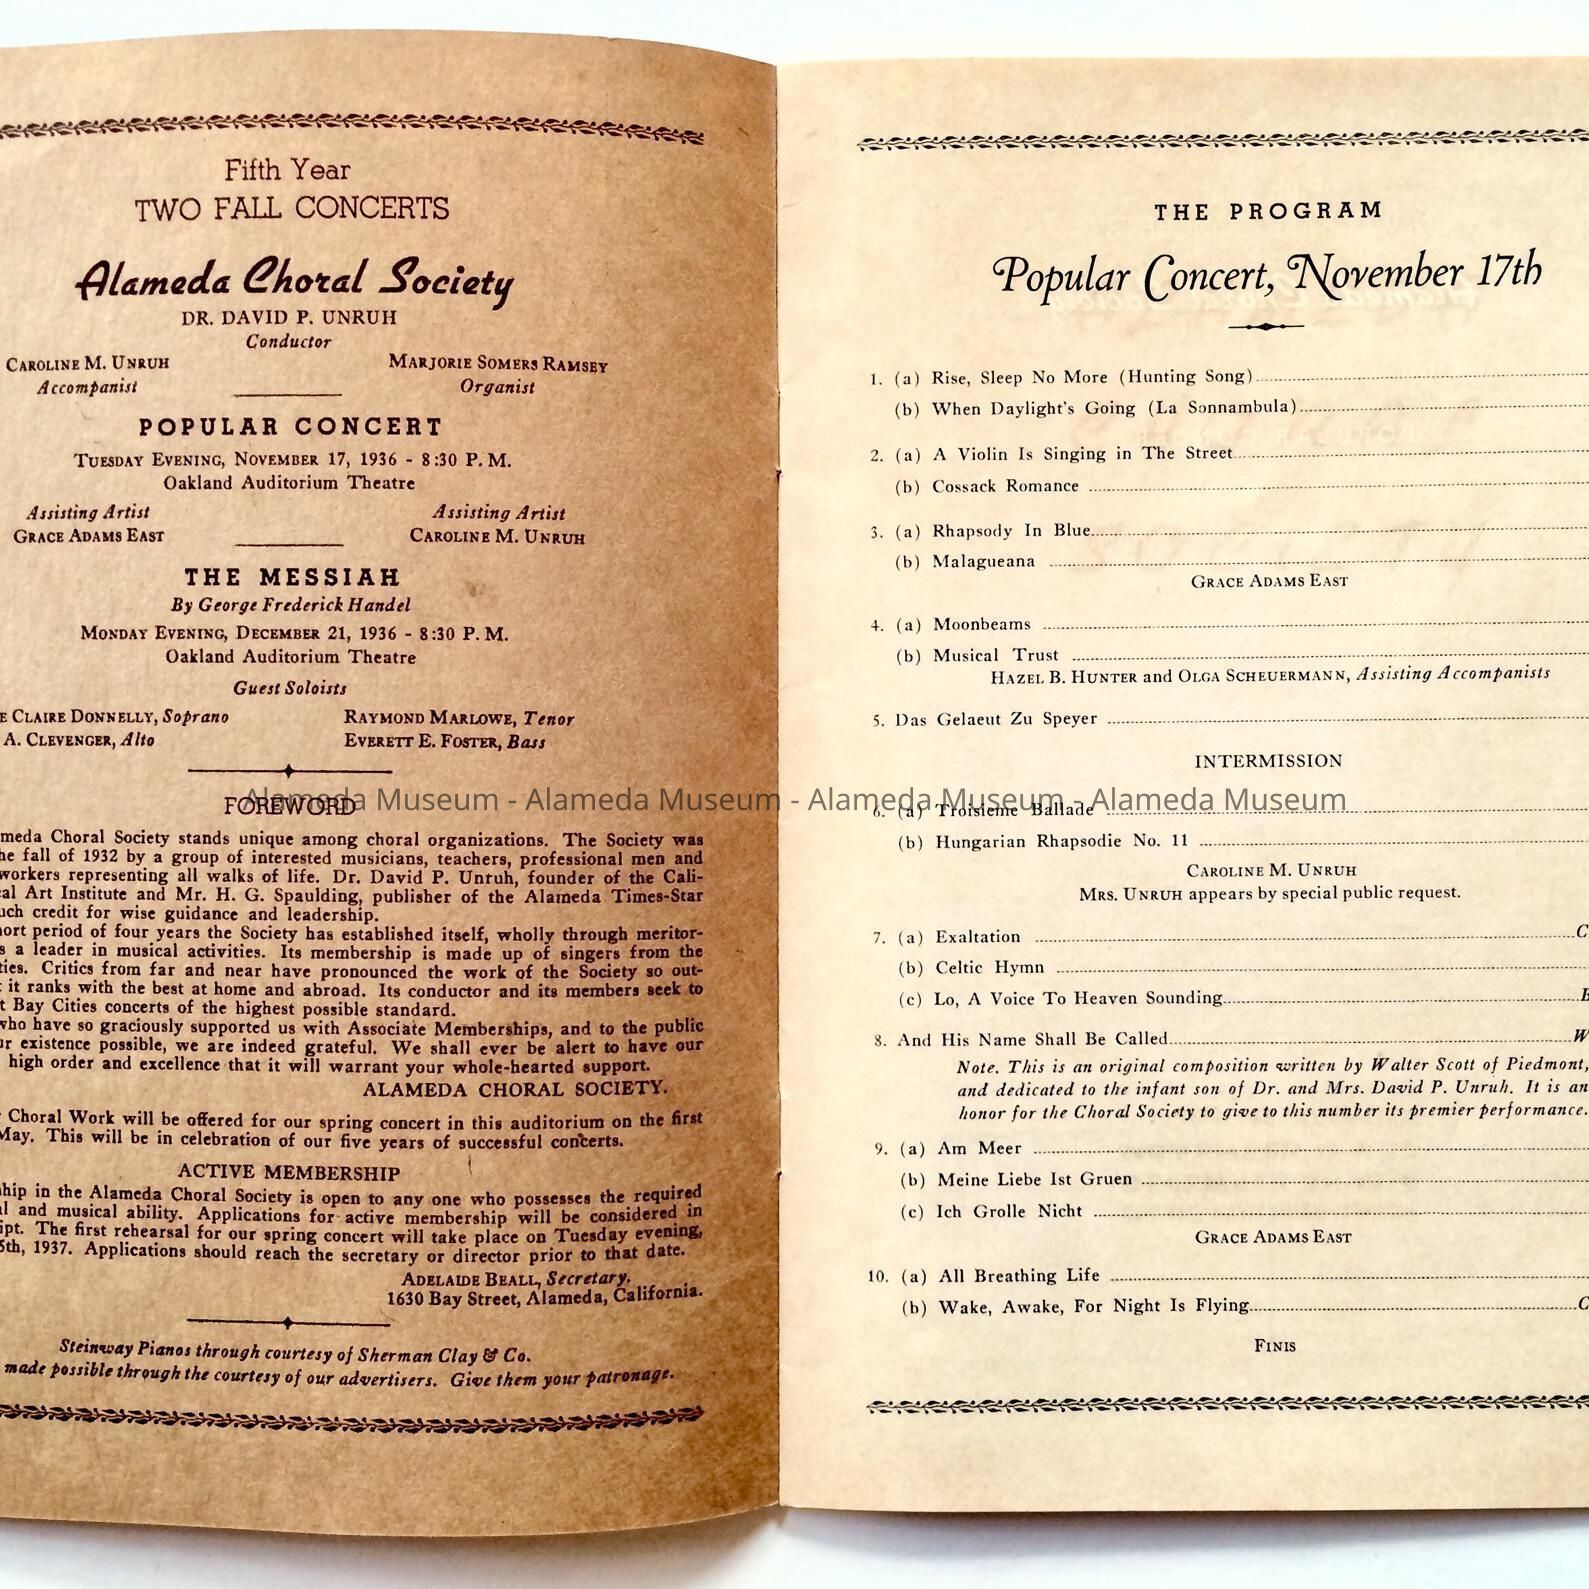 Fifth Year
TWO FALL CONCERTS
Alameda Choral Society
DR. DAVID P. UNRUH
Conductor
CAROLINE M. UNRUH
Accompanist
MARJORIE SOMERS RAMSEY
Organist
POPULAR CONCERT
TUESDAY EVENING, NOVEMBER 17, 1936 - 8:30 P. M.
Oakland Auditorium Theatre
Assisting Artist
GRACE ADAMS EAST
Assisting Artist
CAROLINE M. UNRUH
THE MESSIAH
By George Frederick Handel
MONDAY EVENING, DECEMBER 21, 1936 - 8:30 P. M.
Oakland Auditorium Theatre
Guest Soloists
CLAIRE DONNELLY, Soprano
A. CLEVENGER, Alto
RAYMOND MARLOWE, Tenor
EVERETT E. FOSTER, Bass
FOREWORD
meda Choral Society stands unique among choral organizations. The Society was
he fall of 1932 by a group of interested musicians, teachers, professional men and
workers representing all walks of life. Dr. David P. Unruh, founder of the Cali-
cal Art Institute and Mr. H. G. Spaulding, publisher of the Alameda Times-Star
uch credit for wise guidance and leadership.
ort period of four years the Society has established itself, wholly through meritor-
s a leader in musical activities. Its membership is made up of singers from the
ties. Critics from far and near have pronounced the work of the Society so out-
it ranks with the best at home and abroad. Its conductor and its members seek to
t Bay Cities concerts of the highest possible standard.
who have so graciously supported us with Associate Memberships, and to the public
ur existence possible, we are indeed grateful. We shall ever be alert to have our
high order and excellence that it will warrant your whole-hearted support.
ALAMEDA CHORAL SOCIETY.
Choral Work will be offered for our spring concert in this auditorium on the first
May. This will be in celebration of our five years of successful concerts.
ACTIVE MEMBERSHIP
hip in the Alameda Choral Society is open to any one who possesses the required
l and musical ability. Applications for active membership will be considered in
ipt. The first rehearsal for our spring concert will take place on Tuesday evening,
5th, 1937. Applications should reach the secretary or director prior to that date.
ADELAIDE BEALL, Secretary.
1630 Bay Street, Alameda, California.
Steinway Pianos through courtesy of Sherman Clay & Co.
made possible through the courtesy of our advertisers. Give them your patronage.
THE PROGRAM
Popular Concert, November 17th
1. (a) Rise, Sleep No More (Hunting Song)
(b) When Daylight's Going (La Sonnambula)
2. (a) A Violin Is Singing in The Street
(b) Cossack Romance
3. (a) Rhapsody In Blue
(b) Malagueana
GRACE ADAMS EAST
4. (a) Moonbeams
(b) Musical Trust
HAZEL B. HUNTER and OLGA SCHEUERMANN, Assisting Accompanists
5. Das Gelaeut Zu Speyer
INTERMISSION
6. (a) Troisieme Ballade
(b) Hungarian Rhapsodie No. 11
CAROLINE M. UNRUH
MRS. UNRUH appears by special public request.
7. (a) Exaltation C
(b) Celtic Hymn
(c) Lo, A Voice To Heaven Sounding
8. And His Name Shall Be Called W
Note. This is an original composition written by Walter Scott of Piedmont,
and dedicated to the infant son of Dr. and Mrs. David P. Unruh. It is an
honor for the Choral Society to give to this number its premier performance.
9. (a) Am Meer
(b) Meine Liebe Ist Gruen
(c) Ich Grolle Nicht
GRACE ADAMS EAST
10. (a) All Breathing Life
(b) Wake, Awake, For Night Is Flying C
FINIS
Alameda Museum - Alameda Museum - Alameda Museum - Alameda Museum